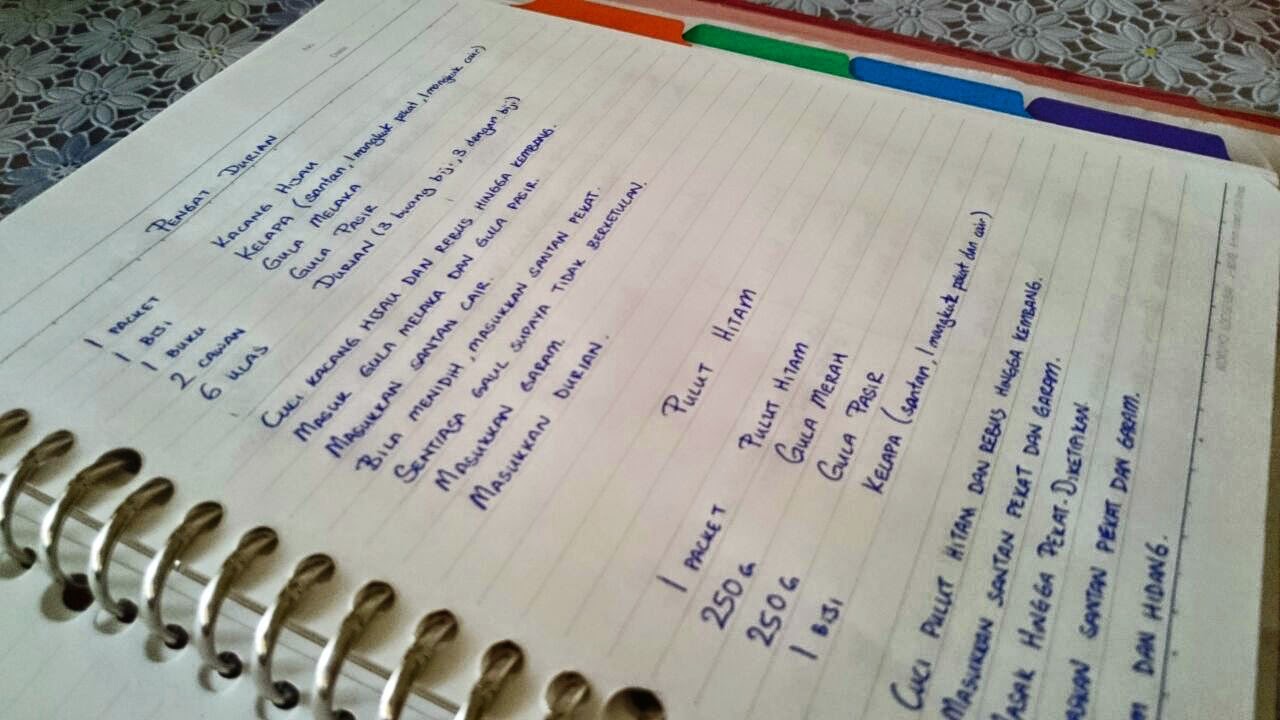 No.
Date
PENGAT DURIAN
1 PACKET KACANG HIJAU
1 BIJI KELAPA (santan, 1 mangkuk pekat, 1 mangkuk cair)
1 BUKU GULA MELAKA
2 CAWAN GULA PASIR
6 ULAS DURIAN (3 buang biji, 3 dengan biji)
CUCI KACANG HIJAU DAN REBUS HINGGA KEMBANG.
MASUK GULA MELAKA DAN GULA PASIR.
MASUKKAN SANTAN CAIR.
BILA MENIDIH, MASUKKAN SANTAN PEKAT.
SENTIASA GAUL SUPAYA TIDAK BERKETULAN.
MASUKKAN GARAM.
MASUKKAN DURIAN.
PULUT HITAM
1 PACKET PULUT HITAM
250 G GULA MERAH
250 G GULA PASIR
1 BIJI KELAPA (santan, 1 mangkuk pekat dan cair)
CUCI PULUT HITAM DAN REBUS HINGGA KEMBANG.
MASUKKAN SANTAN PEKAT DAN GARAM.
MASAK HINGGA PEKAT. DIKETIPIKAN
SANTAN PEKAT DAN GARAM.
DAN HIDANG.